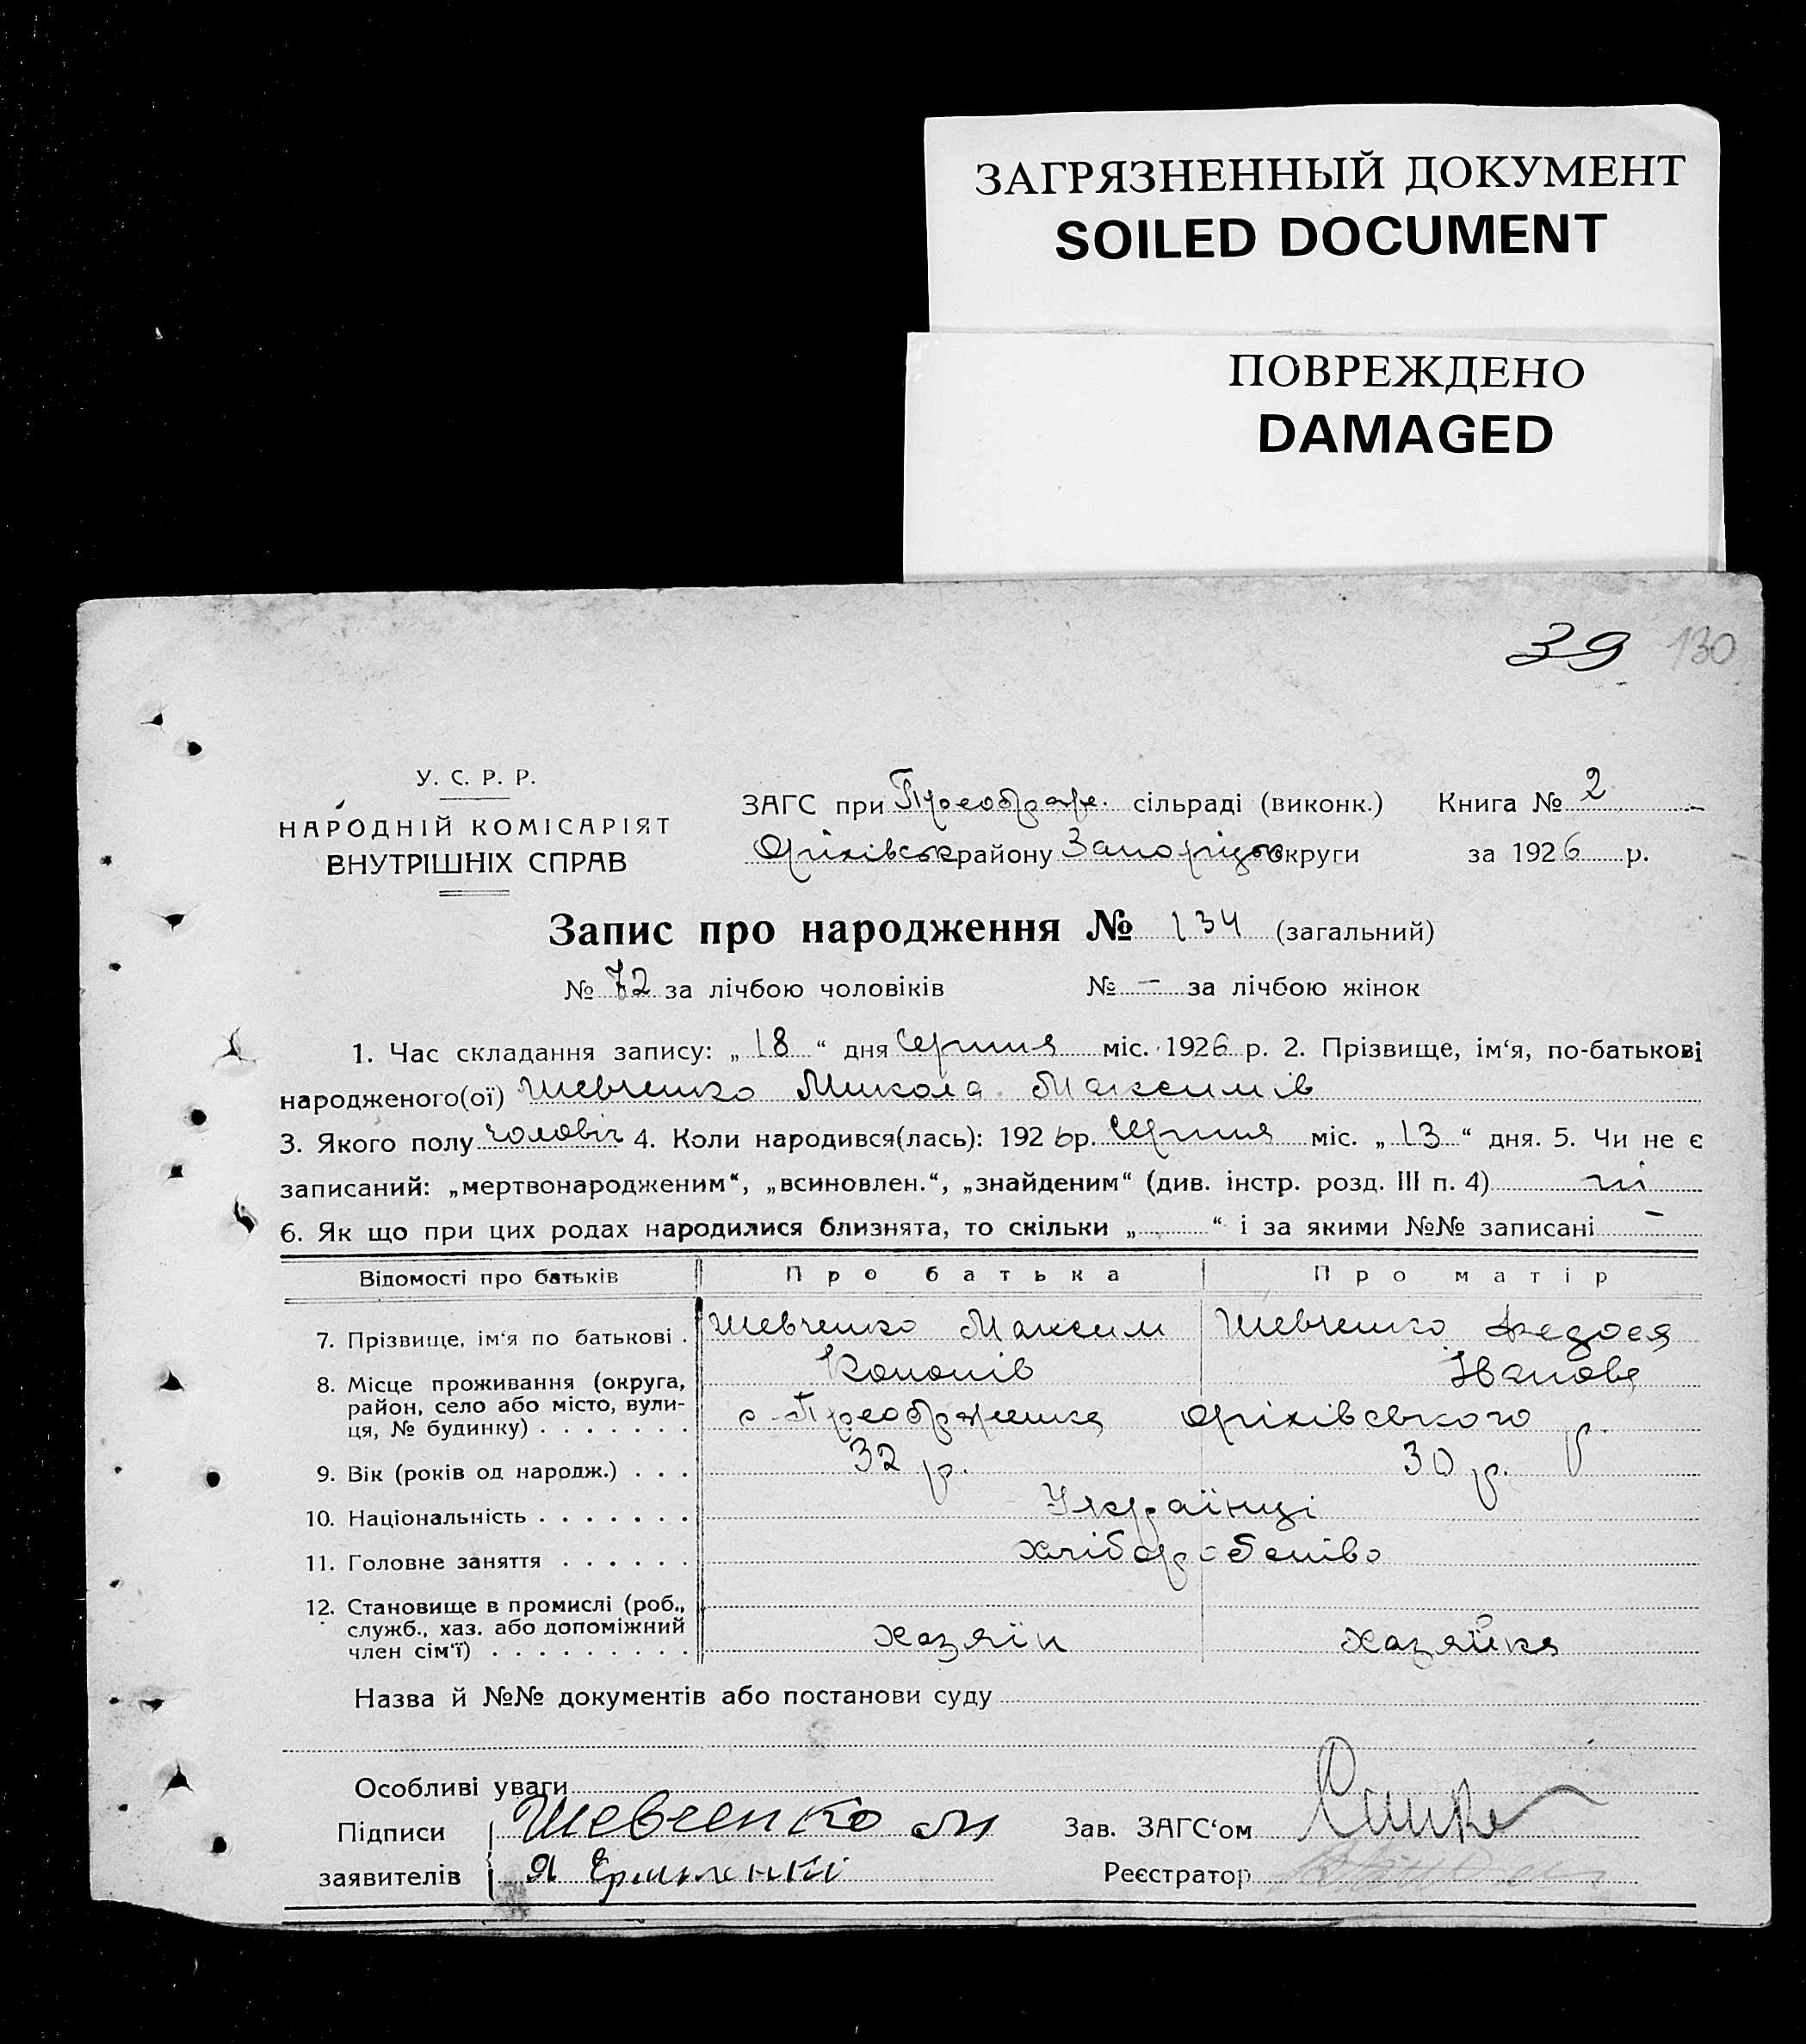 ЗАГРЯЗНЕННЫЙ ДОКУМЕНТ
SOILED DOCUMENT
ПОВРЕЖДЕНО
DAMAGED
39 130
У. С. Р. Р.
НАРОДНІЙ КОМІСАРІЯТ
ВНУТРІШНІХ СПРАВ
ЗАГС при Преображ. сільраді (виконк.) Книга № 2
Оріхівськ району Запоріцьк округи за 1926 р.
Запис про народження № 134 (загальний)
№ 72 за лічбою чоловіків № – за лічбою жінок
1. Час складання запису: „ 18 “ дня Серпня міс. 1926 р. 2. Прізвище, ім‘я, по-батькові
народженого(ої) Шевченко Микола Максимів
3. Якого полу чоловіч 4. Коли народився(лась): 1926 р. Серпня міс. „ 13 “ дня. 5. Чи не є
записаний: „мертвонародженим“, „всиновлен.“, „знайденим“ (див. інстр. розд. III п. 4) ні
6. Як що при цих родах народилися близнята, то скільки „ “ і за якими №№ записані –
Відомості про батьків Про батька Про матір
7. Прізвище, ім‘я по батькові . Шевченко Максим Шевченко Федося
Кононів Іванова
8. Місце проживання (округа,
район, село або місто, вули-
ця, № будинку) . . . . . . . с. Преображенка Оріхівського р.
9. Вік (років од народж.) . . . 32 р. 30 р.
10. Національність . . . . . . . Українці
11. Головне заняття . . . . . . хлібор
12. Становище в промислі (роб.,
служб., хаз. або допоміжний
член сім‘ї) . . . . . . . . . хазяїн хазяйка
Назва й №№ документів або постанови суду
Особливі уваги
Підписи Шевченко М Зав. ЗАГС‘ом
заявителів Я Реєстратор